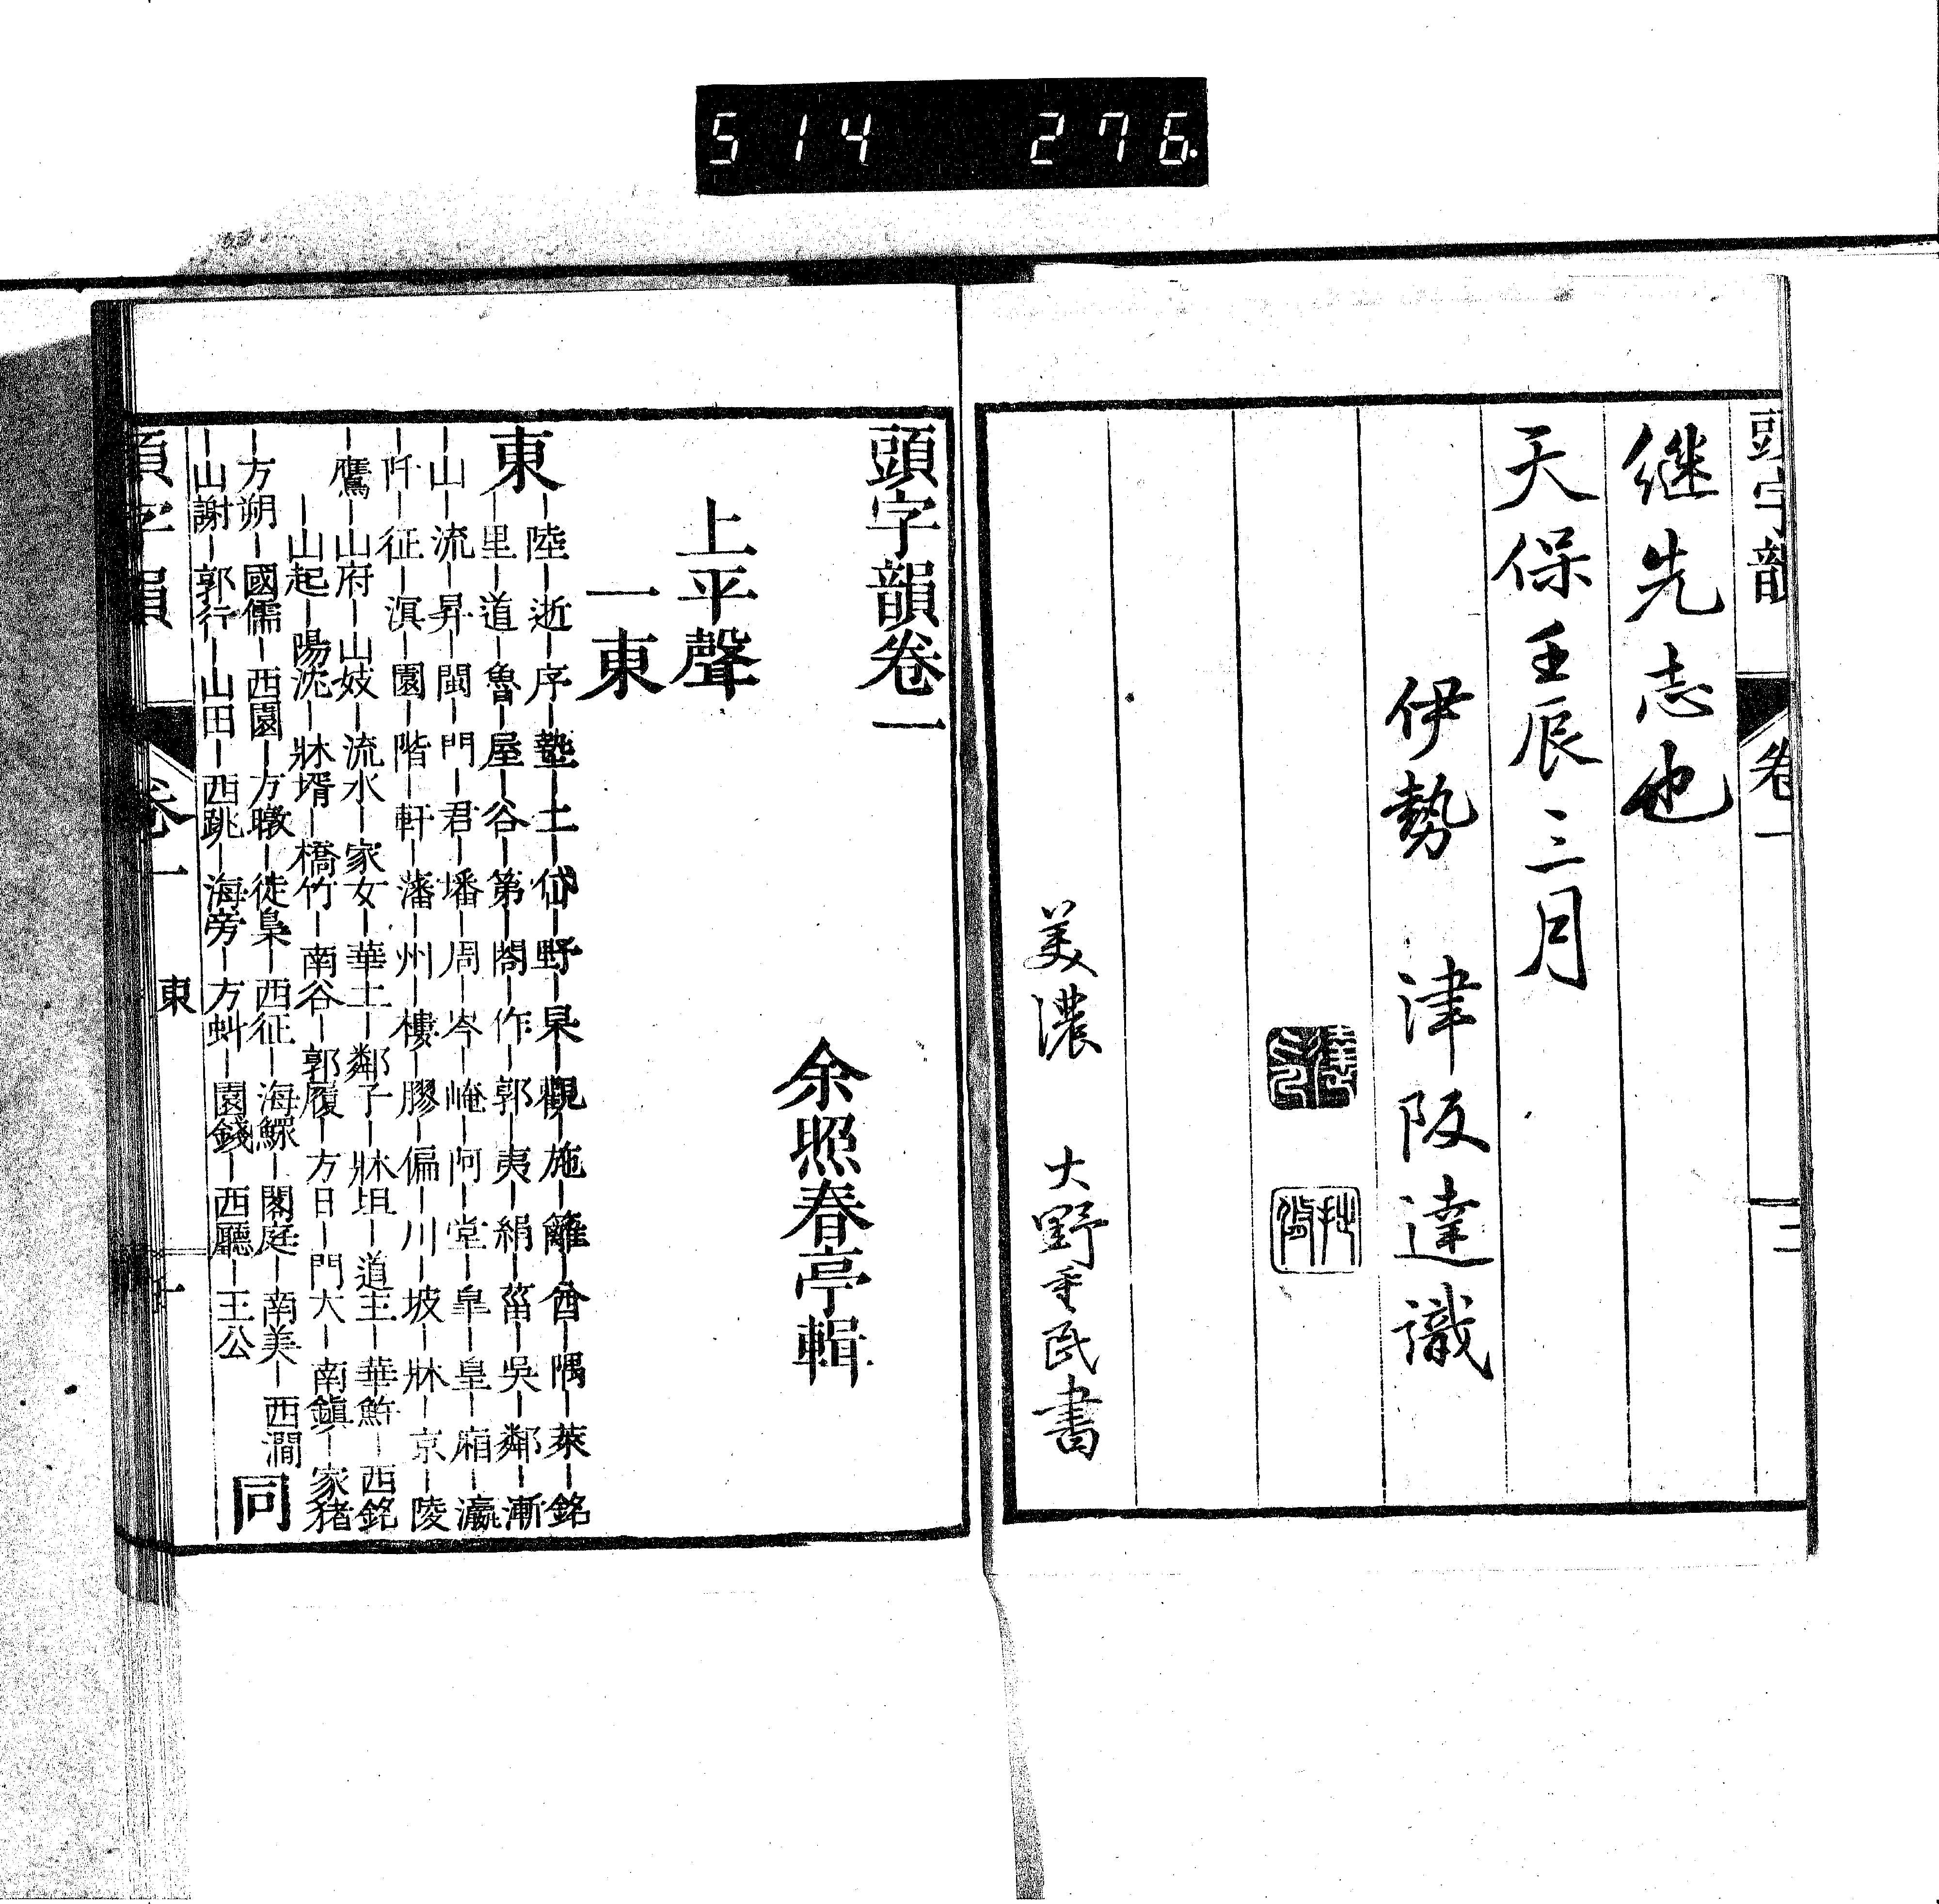 514 276.
頭字韻 卷一 二
継先志也
天保壬辰三月
伊勢 津阪達識
美濃 大野 民書
頭字韻卷一
余照春亭輯
上平聲
一東
東｜陸｜逝｜序｜墊｜土｜岱｜野｜杲｜觀｜施｜籬｜酓｜隅｜萊｜銘
｜里｜道｜魯｜屋｜谷｜第｜閣｜作｜郭｜夷｜絹｜菑｜吳｜鄰｜漸
｜山｜流｜昇｜閩｜門｜君｜墦｜周｜岑｜崦｜阿｜堂｜皐｜皇｜廂｜瀛
｜阡｜征｜溟｜園｜階｜軒｜藩｜州｜樓｜膠｜偏｜川｜坡｜牀｜京｜陵
｜鷹｜山府｜山妓｜流水｜家女｜華土｜鄰子｜牀坦｜道主｜華鮓｜西銘
｜山起｜陽沈｜牀壻｜橋竹｜南谷｜郭履｜方日｜門大｜南鎮｜家豬
｜方朔｜國儒｜西園｜方暾｜徒梟｜西征｜海鰥｜閣庭｜南美｜西澗
｜山謝｜郭行｜山田｜西跳｜海旁｜方虯｜園錢｜西廳｜王公 同
頭字韻 卷一 東